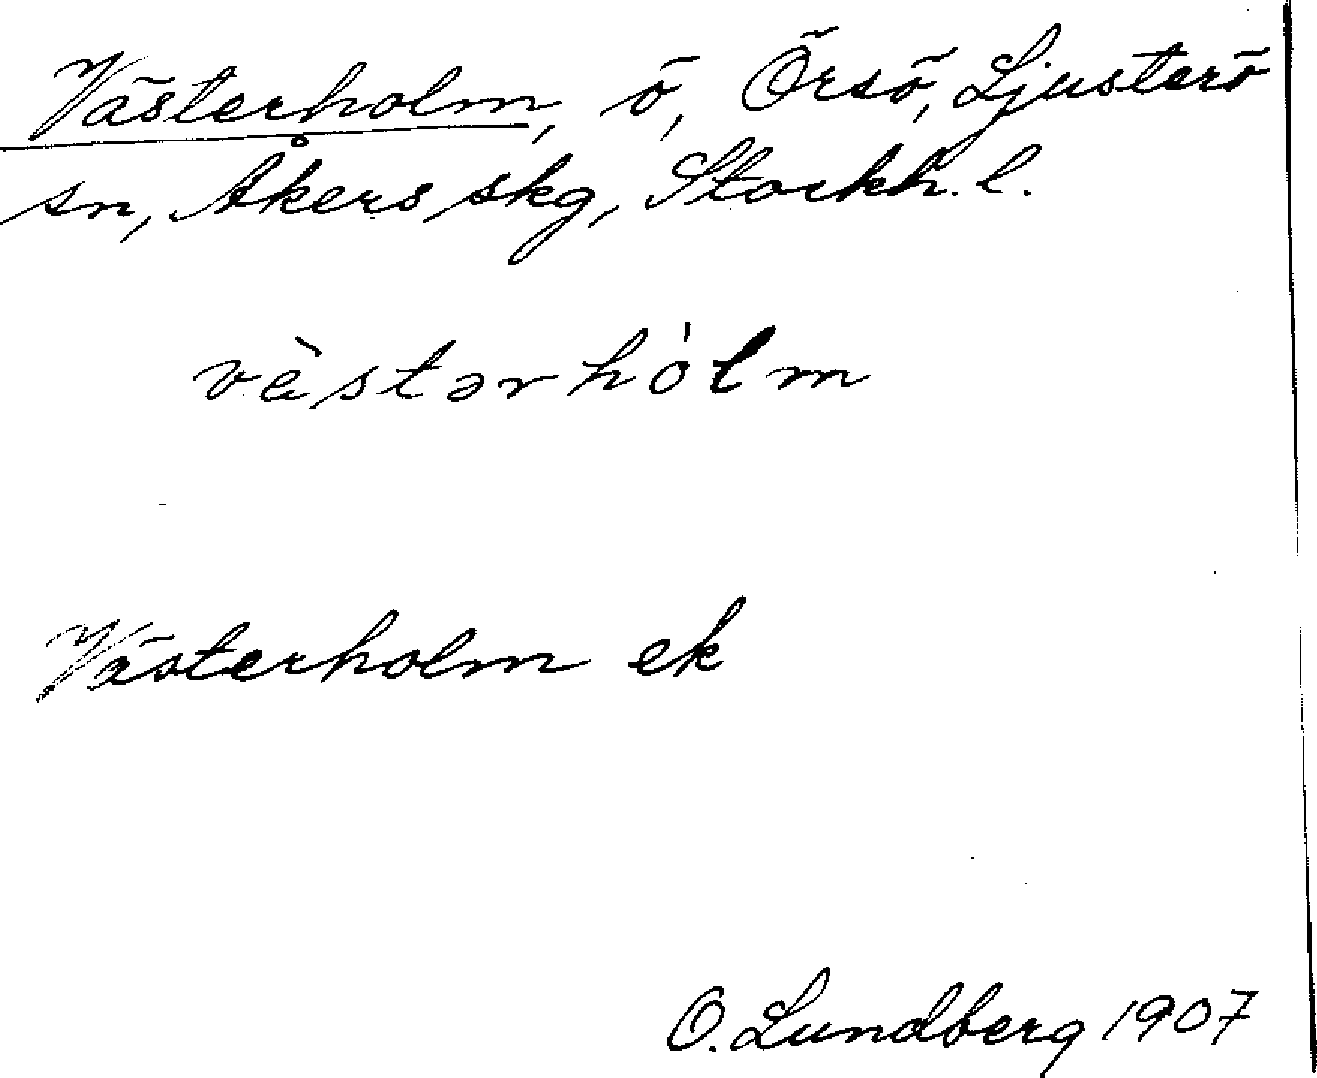 Västerholm, ö, Örsö, Ljusterö
sn, Åkers skg, Stockh. l.
vèstərhólm
Västerholm ek
O. Lundberg 1907